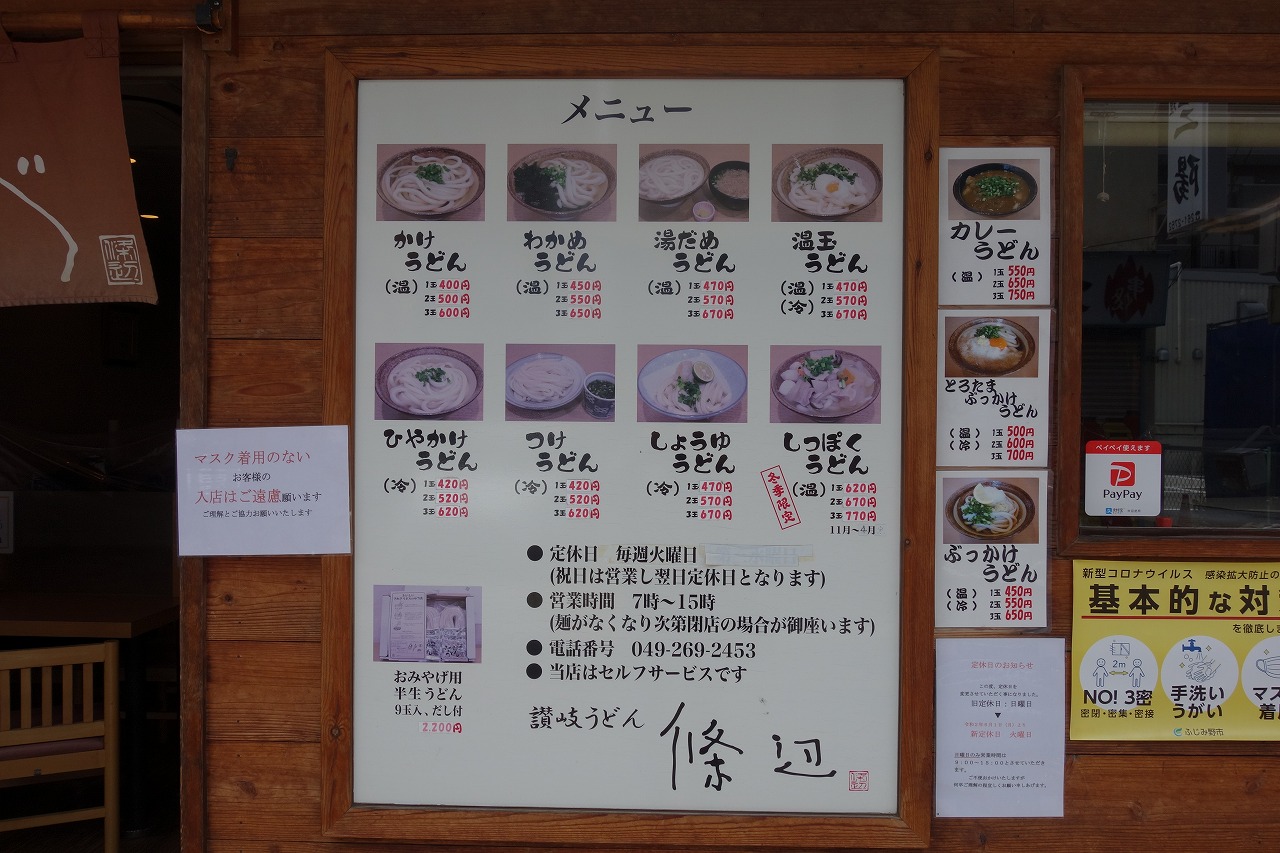 メニュー
かけ
うどん
(温) 1玉 400円
2玉 500円
3玉 600円
わかめ
うどん
(温) 1玉 450円
2玉 550円
3玉 650円
湯だめ
うどん
(温) 1玉 470円
2玉 570円
3玉 670円
温玉
うどん
(温) 1玉 470円
(冷) 2玉 570円
3玉 670円
ひやかけ
うどん
(冷) 1玉 420円
2玉 520円
3玉 620円
つけ
うどん
(冷) 1玉 420円
2玉 520円
3玉 620円
しょうゆ
うどん
(冷) 1玉 470円
2玉 570円
3玉 670円
しっぽく
うどん
冬季限定
(温) 1玉 620円
2玉 670円
3玉 770円
11月～4月
おみやげ用
半生うどん
9玉入、だし付
2.200円
●定休日 毎週火曜日
(祝日は営業し翌日定休日となります)
●営業時間 7時～15時
(麺がなくなり次第閉店の場合が御座います)
●電話番号 049-269-2453
●当店はセルフサービスです
讃岐うどん 條辺
カレー
うどん
(温) 1玉 550円
2玉 650円
3玉 750円
とろたま
ぶっかけ
うどん
(温) 1玉 500円
(冷) 2玉 600円
3玉 700円
ぶっかけ
うどん
(温) 1玉 450円
(冷) 2玉 550円
3玉 650円
定休日のお知らせ
この度、定休日を
変更させていただく事になりました。
旧定休日：日曜日
▼
新定休日 火曜日
日曜日のみ営業時間は
9：00～15：00とさせていただき
ます。
ご不便おかけいたしますが
マスク着用のない
お客様の
入店はご遠慮願います
ご理解とご協力お願いいたします
條辺
ペイペイ使えます
PayPay
新型コロナウイルス 感染拡大防止の
基本的な対
を徹底し
2m
NO! 3密
密閉・密集・密接
手洗い
うがい
マス
着
ふじみ野市